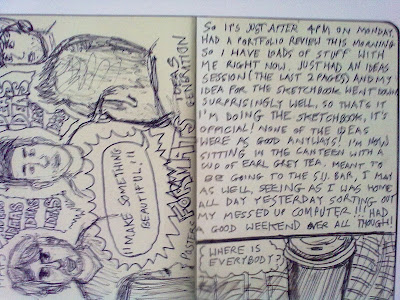 SO IT'S JUST AFTER 4PM ON MONDAY,
HAD A PORTFOLIO REVIEW THIS MORNING
SO I HAVE LOADS OF STUFF WITH
ME RIGHT NOW. JUST HAD AN IDEAS
SESSION (THE LAST 2 PAGES) AND MY
IDEA FOR THE SKETCHBOOK WENT DOWN
SURPRISINGLY WELL, SO THAT'S IT
I'M DOING THE SKETCHBOOK, IT'S
OFFICIAL! NONE OF THE IDEAS
WERE AS GOOD ANYWAYS! I'M NOW
SITTING IN THE CANTEEN WITH A
CUP OF EARL GREY TEA. MEANT TO
BE GOING TO THE S.U. BAR, I MAY
AS WELL, SEEING AS I WAS HOME
ALL DAY YESTERDAY SORTING OUT
MY MESSED UP COMPUTER!!! HAD
A GOOD WEEKEND OVER ALL THOUGH!
WHERE IS
EVERYBODY?
I MAKE SOMETHING
BEAUTIFUL!!!
FORMATS
POSTERS
IDEAS
GENERATION